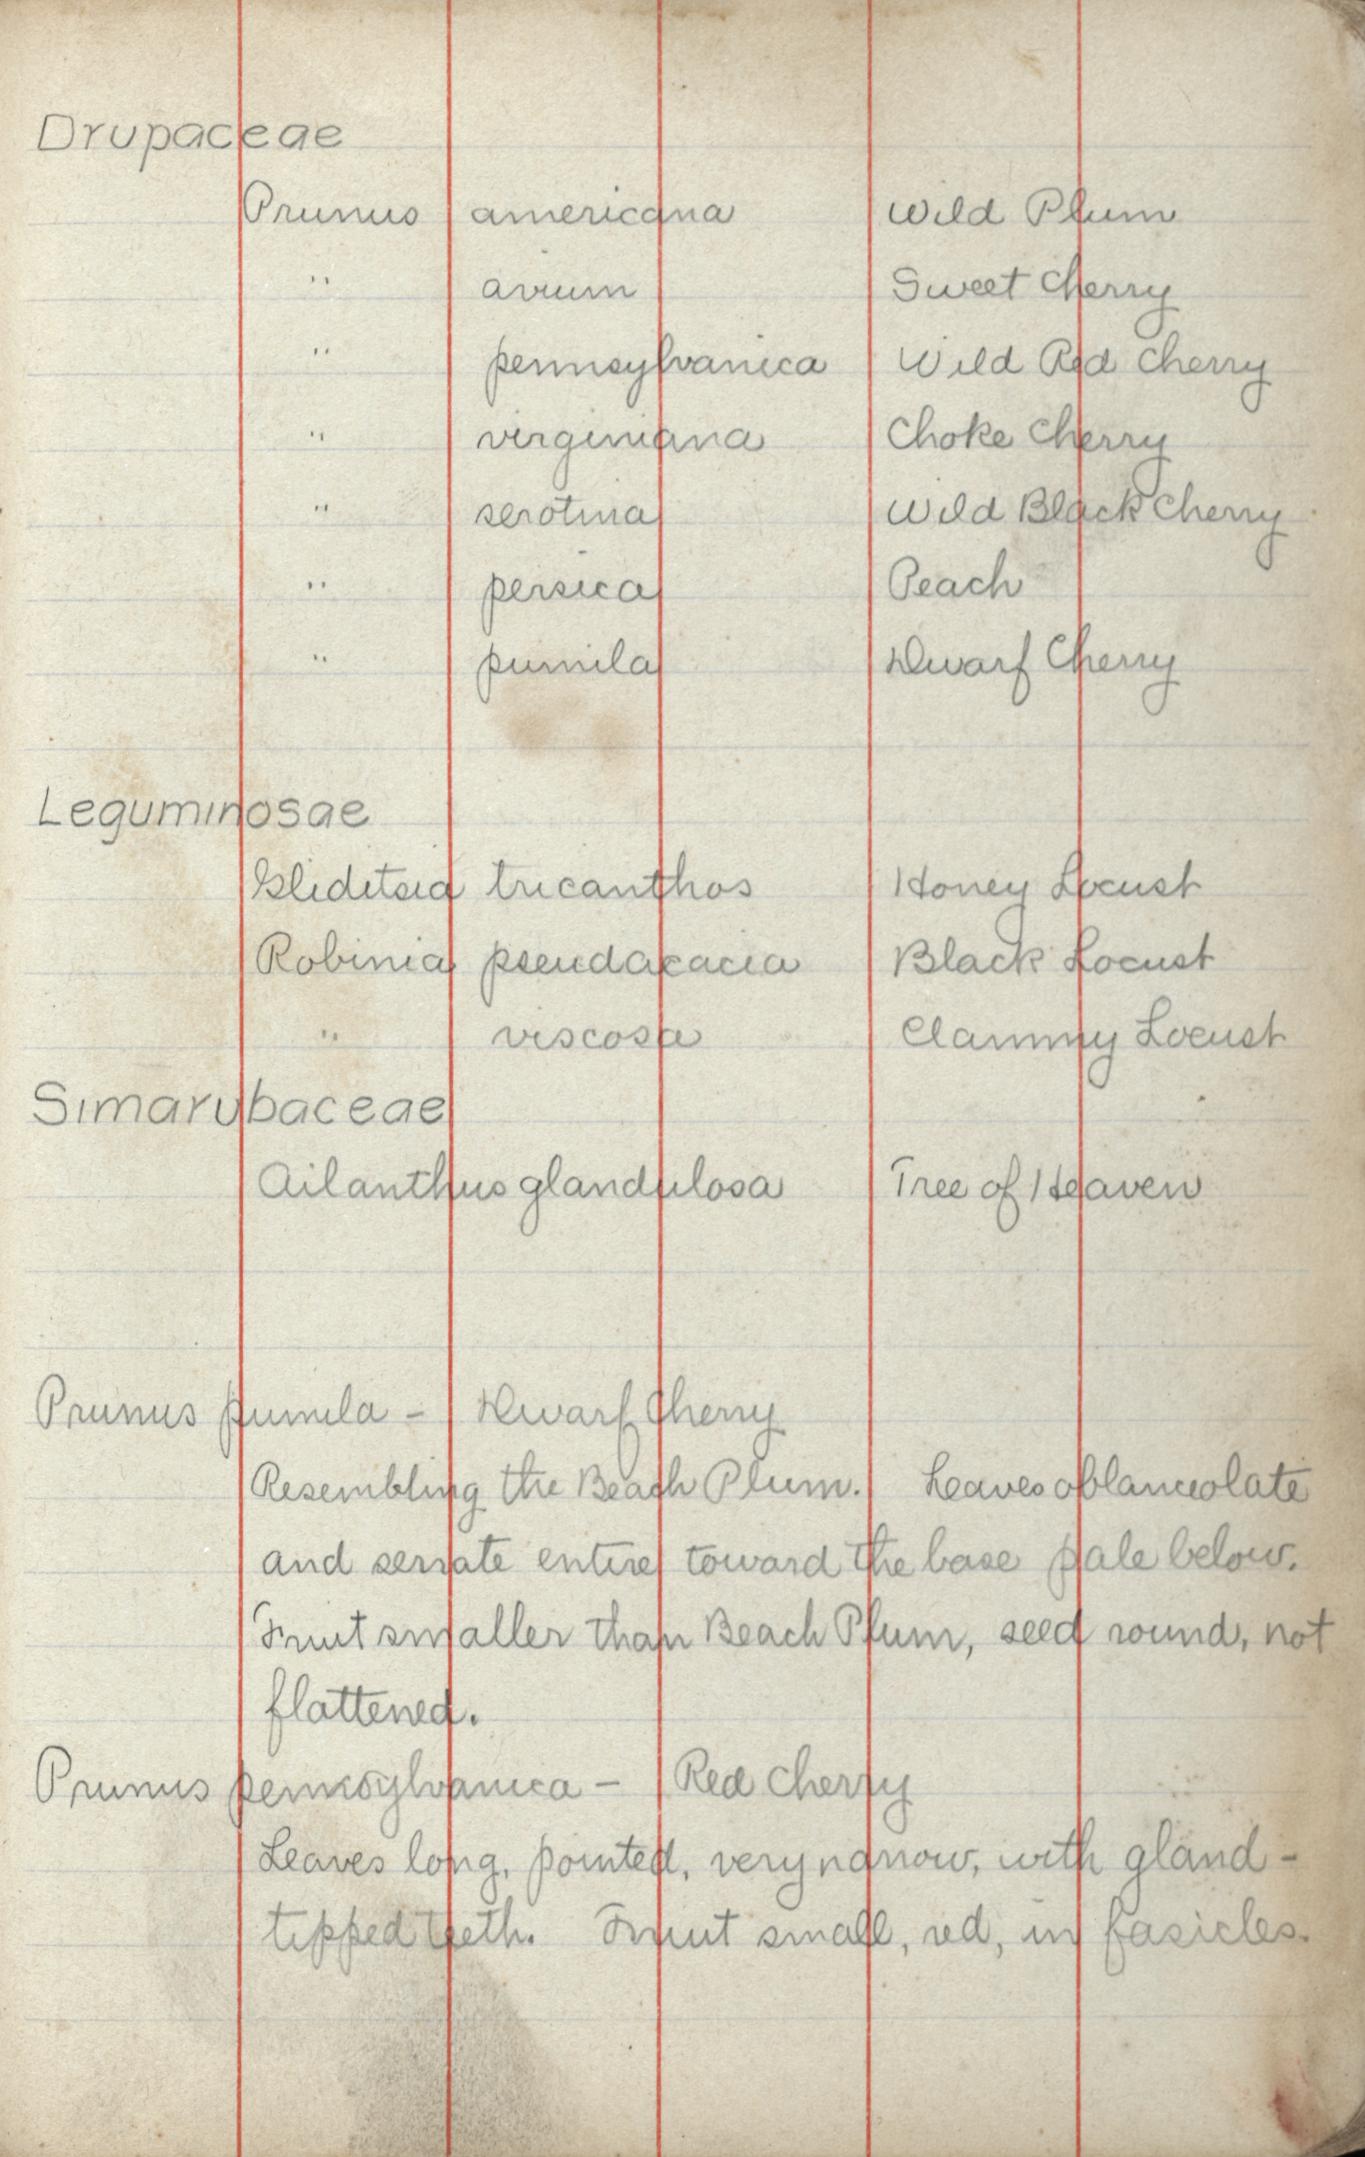 Drupaceae
Prunus americana Wild Plum
" avium Sweet Cherry
" pennsylvanica Wild Red Cherry
" virginiana Choke Cherry
" serotina Wild Black Cherry
" persica Peach
" pumila Dwarf Cherry
Leguminosae
Gleditsia tricanthos Honey Locust
Robinia pseudacacia Black Locust
" viscosa Clammy Locust
Simarubaceae
Ailanthus glandulosa Tree of Heaven
Prunus pumila - Dwarf Cherry
Resembling the Beach Plum. Leaves oblanceolate
and serrate entire toward the base pale below.
Fruit smaller than Beach Plum, seed round, not
flattened.
Prunus pennsylvanica - Red Cherry
Leaves long, pointed, very narrow, with gland-
tipped teeth. Fruit small, red, in fasicles.